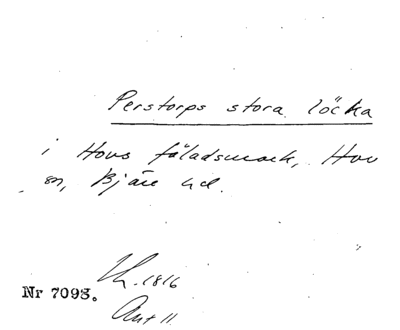 Perstorps stora löcka
i Hovs fäladsmark, Hov
sn, Bjäre hd.
Lh. 1816
Nr 7093.
Akt 11